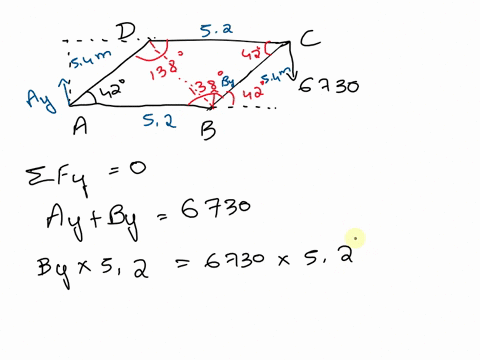 D 5.2 C
5.4m 42°
138°
Ay 42° 138° By 5.4m 42° 6730
A 5.2 B
ΣFy = 0
Ay + By = 6730
By × 5.2 = 6730 × 5.2